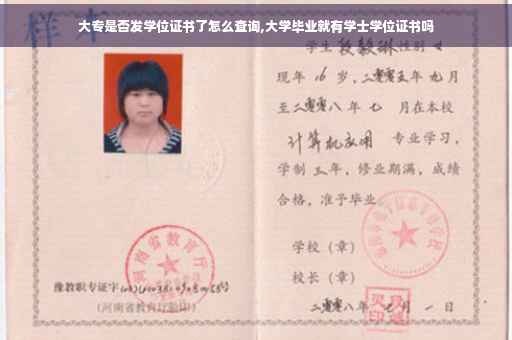 大专是否发学位证书了怎么查询,大学毕业就有学士学位证书吗
样本
学生 段毅琳 性别 女
现年 16 岁,二零零五年 九月
至二零零八 年 七 月在本校
计算机应用 专业学习,
学制 三 年,修业期满,成绩
合格,准予毕业
学校(章)
校长(章)
二零零八年 七 月 一 日
河南省教育厅
豫教职专证字
(河南省教育厅验印)